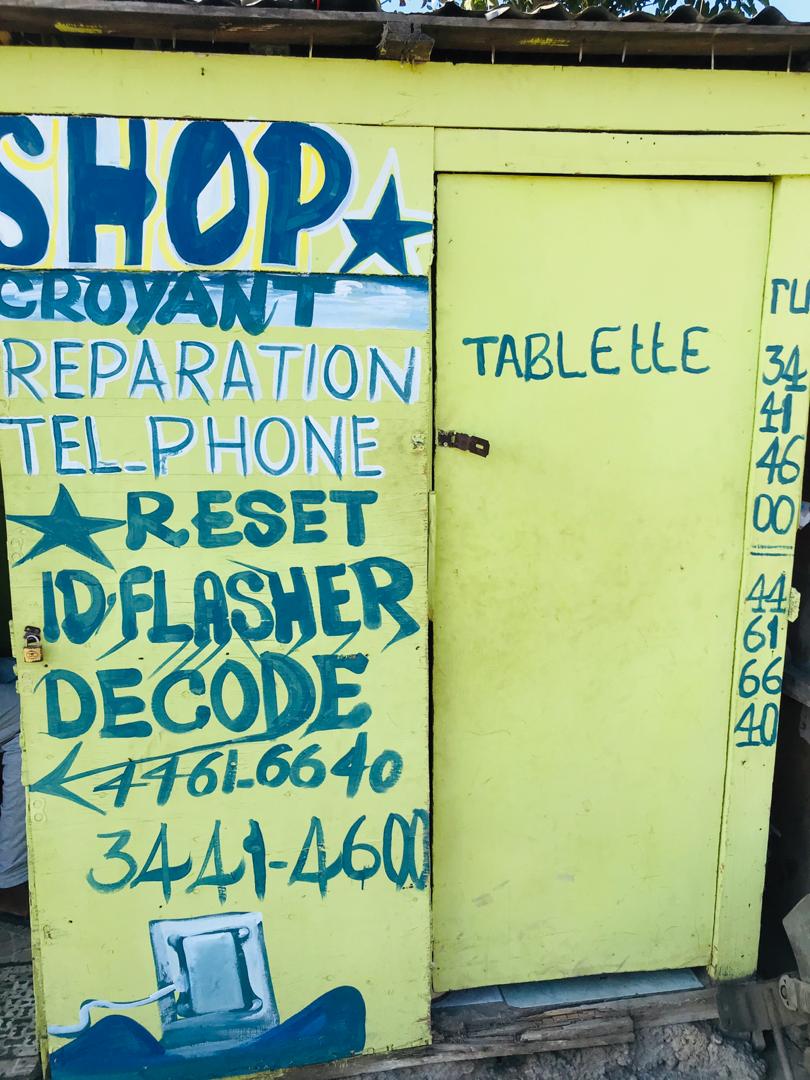 SHOP
CROYANT
REPARATION
TEL_PHONE
RESET
ID, FLASHER
DECODE
4461-6640
3441-4600
TABLEttE
34
41
46
00
44
61
66
40